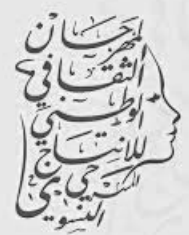 المهرجان
الثقافي
الوطني
للإنتاج
المسرحي
النسوي